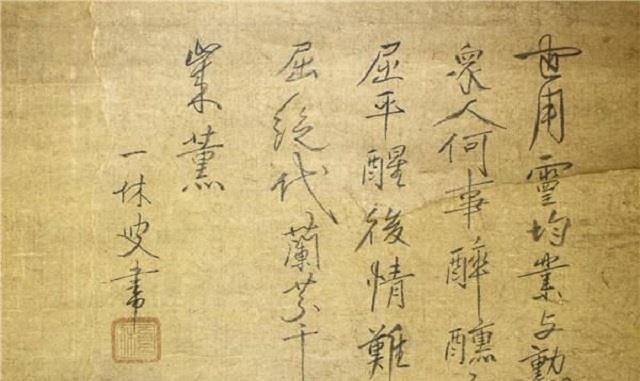 世用靈均業与勲
衆人何事醉醺
屈平醒後情難
屈絶代蘭芬千
薫
一休叟書